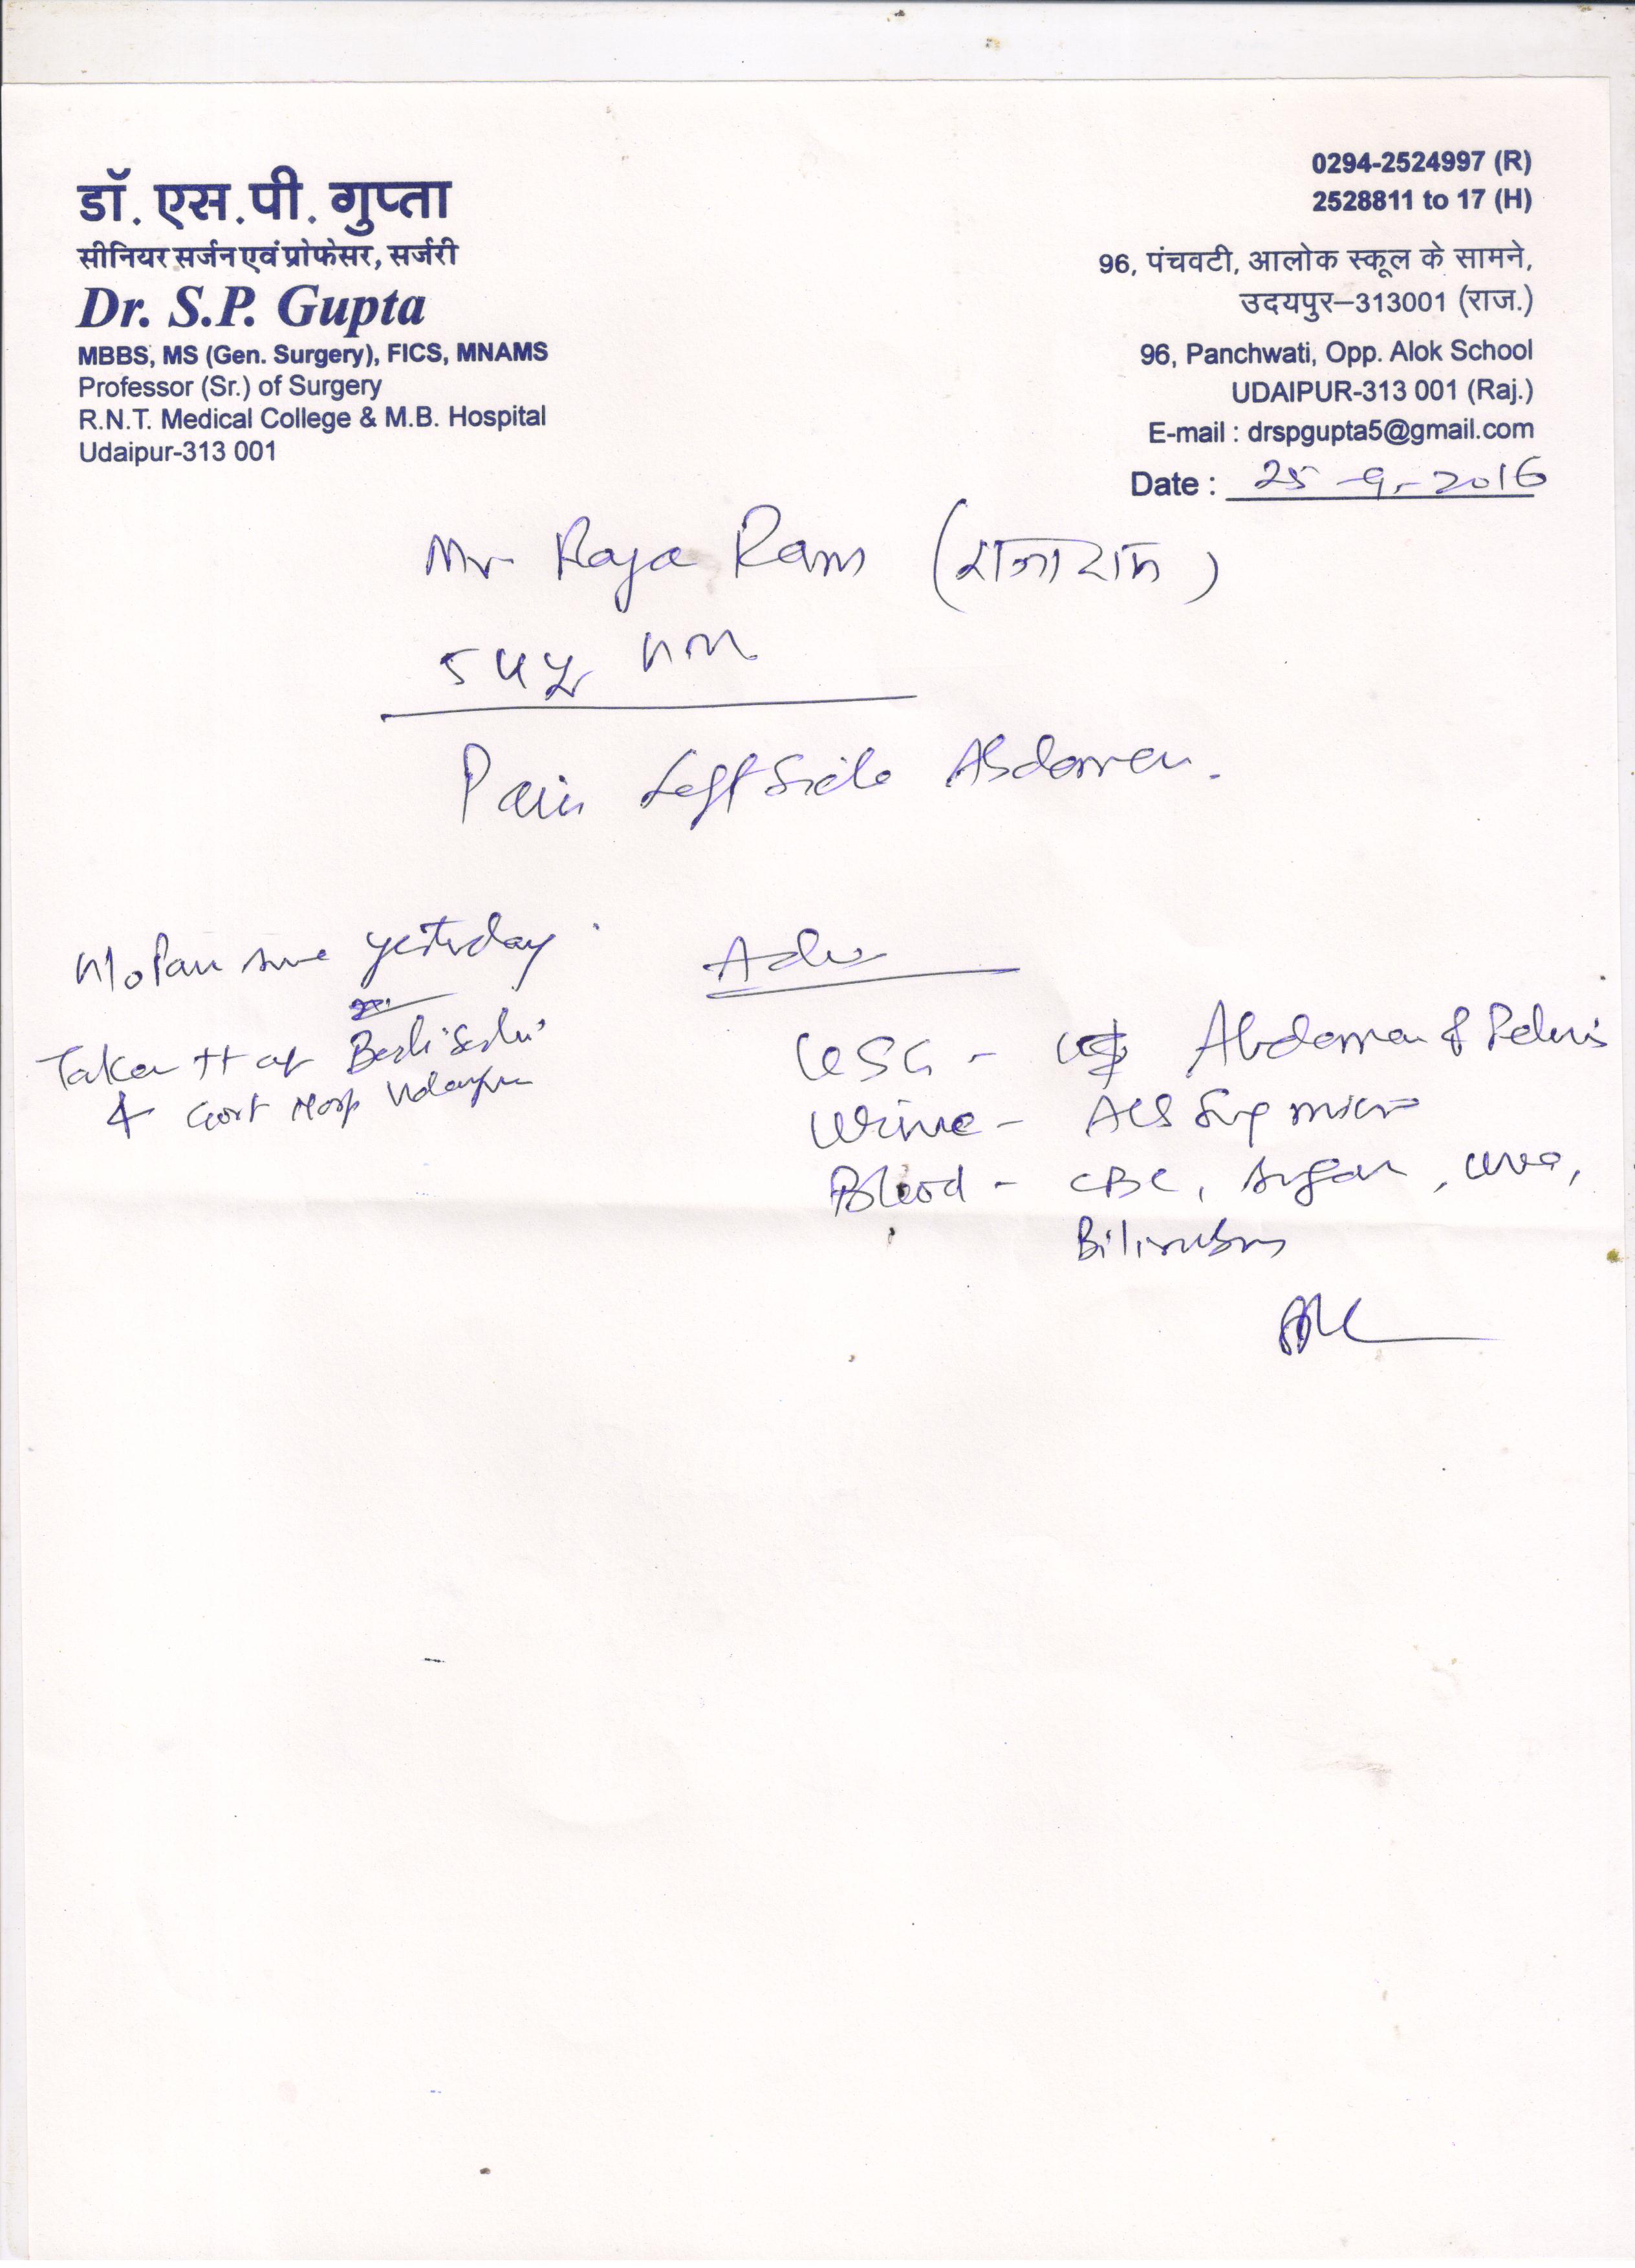 डॉ. एस.पी. गुप्ता
सीनियर सर्जन एवं प्रोफेसर, सर्जरी
Dr. S.P. Gupta
MBBS, MS (Gen. Surgery), FICS, MNAMS
Professor (Sr.) of Surgery
R.N.T. Medical College & M.B. Hospital
Udaipur-313 001
0294-2524997 (R)
2528811 to 17 (H)
96, पंचवटी, आलोक स्कूल के सामने,
उदयपुर–313001 (राज.)
96, Panchwati, Opp. Alok School
UDAIPUR-313 001 (Raj.)
E-mail : drspgupta5@gmail.com
Date : 25-9-2016
Mr Raja Ram (राजाराम)
Pain Left Side Abdomen.
yesterday
Taken tt at
& Govt Hosp Udaipur
Adv
USG - Abdomen & Pelvis
Urine - Alb Sug micro
Blood - CBC, sugar, urea,
Bilirubin